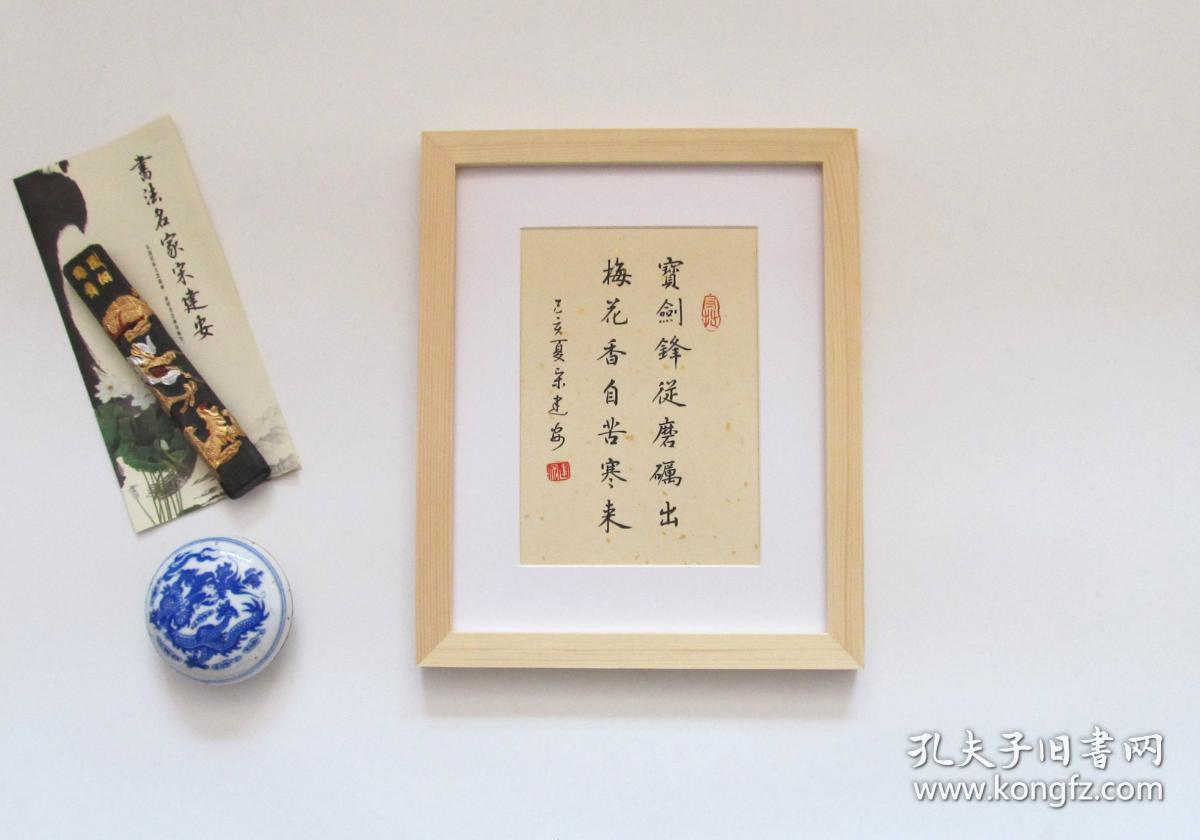 書法名家宋建安
寶劍鋒從磨礪出
梅花香自苦寒来
己亥夏宋建安
孔夫子旧书网
www.kongfz.com